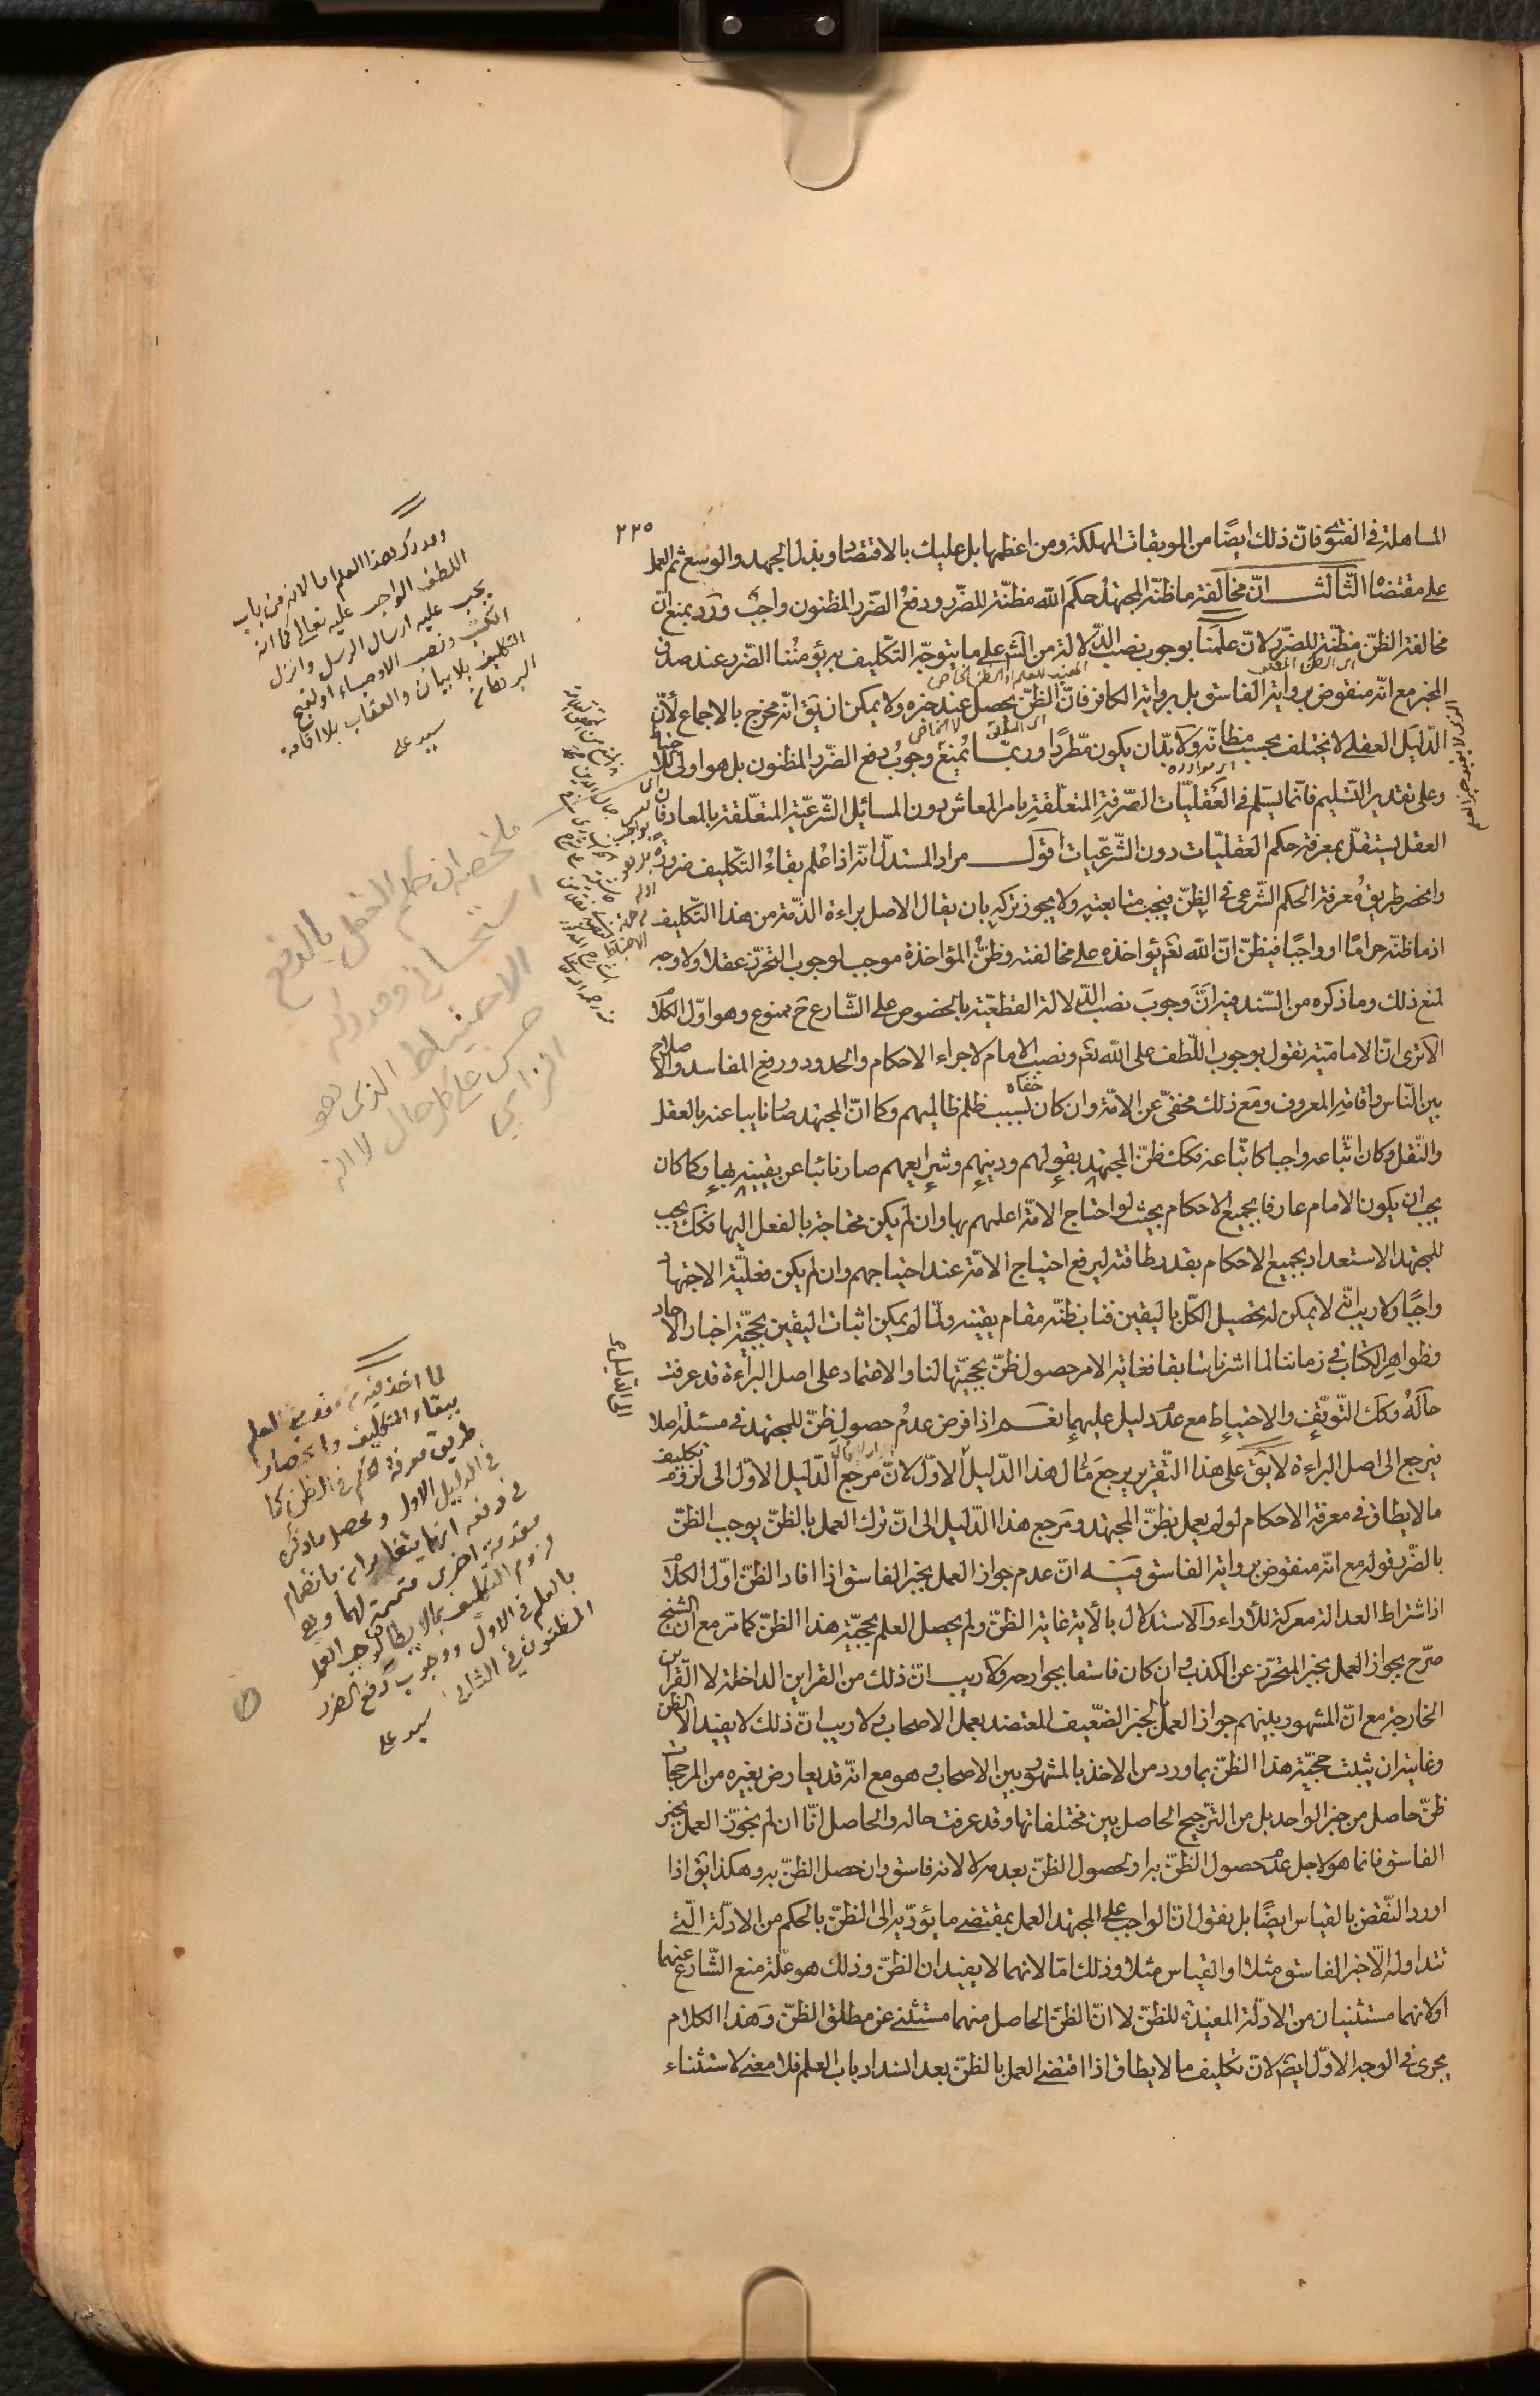 ٢٢٥
المساهلة فى الفتوى فانّ ذلك ايضًا من الموبقات المهلكة ومن اعظمها بل عليك بالاقتصاد وبذل الجهد والوسع ثم العمل
على مقتضاه الثالث انّ مخالفة ما ظنّه المجتهدُ حكمَ الله مظنّة للضّرر ودفعُ الضّرر المظنون واجبٌ ورُدّ بمنع انّ
مخالفة الظنّ مظنّة للضّرر لانّ علمَنا بوجوب نصب الدّلالة من الشّرع على ما يتوجّه التّكليف به يؤمنُنا الضّرر عند صدق
المخبر مع انّه منقوض برواية الفاسق بل برواية الكافر فانّ الظنّ يحصل عند خبره ولا يمكن ان يق انّه مخرج بالاجماع لأنّ
الدّليل العقلى لا يختلف بحسب مظانّه ولا بدّ ان يكون مطّردًا وربّما يُمنع وجوبُ دفع الضّرر المظنون بل هو اولى
وعلى تقدير التسليم فانّما يسلّم فى العقليّات الصّرفة المتعلّقة بامر المعاش دون المسائل الشّرعيّة المتعلّقة بالمعاد فانّ
العقل يستقلّ بمعرفة حكم العقليّات دون الشّرعيّات اقول مراد المستدلّ انّه اذا عُلم بقاءُ التّكليف ضرورة
وانحصر طريقُ معرفة الحكم الشّرعى فى الظنّ فيجب متابعته ولا يجوز تركه بان يقال الاصل براءة الذّمة من هذا التّكليف
اذ ما ظنّه حرامًا او واجبًا فيظنّ انّ الله تعم يؤاخذه على مخالفته وظنُّ المؤاخذة موجب لوجوب التحرّز عقلا ولا وجه
لمنع ذلك وما ذكره من السّند فيه انّ وجوبَ نصب الدّلالة القطعيّة بالخصوص على الشّارع ح ممنوع وهو اوّل الكلام
الا ترى انّ الاماميّة تقول بوجوب اللّطف على الله تعم ونصب الامام لاجراء الاحكام والحدود ورفع المفاسد والاصلاح
بين النّاس واقامة المعروف ومع ذلك مخفىّ عن الامّة وان كان خفاؤه بسبب ظلم ظالميهم وكما انّ المجتهد صار نايبا عنه بالعقل
والنّقل وكان اتّباعه واجبا كاتّباعه فكك ظنّ المجتهد بقولهم ودينهم وشرايعهم صار نائبا عن يقينه بها وكما كان
يجب ان يكون الامام عارفا بجميع الاحكام بحيث لو احتاج الامّة اعلمهم بها وان لم يكن محتاجة بالفعل اليها فكك يجب
للمجتهد الاستعداد بجميع الاحكام بقدر طاقته ليرفع احتياج الامّة عند احتياجهم وان لم يكن فعليّة الاجتهاد
واجبًا ولا ريب انّه لا يمكن له تحصيل الكلّ باليقين فناب ظنّه مقام يقينه ولمّا لم يمكن اثبات اليقين بحجيّة اخبار الآحاد
وظواهر الكتاب فى زماننا لما اشرنا سابقا فغاية الامر حصول ظنّ بحجيّتها لنا والاعتماد على اصل البراءة قد عرفت
حالَهُ وكك التّوقّف والاحتياط مع عدم دليل عليهما نعم اذا فرض عدمُ حصولِ ظنّ للمجتهد فى مسئلة اصلا
فيرجع الى اصل البراءة لا يق على هذا التّقرير يرجع مآل هذا الدّليل الى الاوّل لانّ مرجع الدّليل الاوّل الى لزوم تكليف
ما لا يطاق فى معرفة الاحكام لو لم يعمل بظنّ المجتهد ومرجع هذا الدّليل الى انّ ترك العمل بالظنّ يوجب الظنّ
بالضّرر قوله مع انّه منقوض برواية الفاسق فيه انّ عدم جواز العمل بخبر الفاسق اذا افاد الظنّ اوّل الكلام
اذ اشتراط العدالة معركة للآراء والاستدلال بالآية غايته الظنّ ولم يحصل العلم بحجيّة هذا الظنّ كما مرّ مع انّ الشيخ
صرّح بجواز العمل بخبر المتحرّز عن الكذب وان كان فاسقا بجوارحه ولا ريب انّ ذلك من القراين الداخلة لا القراين
الخارجة مع انّ المشهور بينهم جواز العمل بالخبر الضّعيف المعتضد بعمل الاصحاب ولا ريب انّ ذلك لا يفيد الا الظن
وغايته ان يثبت حجيّة هذا الظنّ بما ورد من الاخذ بالمشهور بين الاصحاب وهو مع انّه قد يعارض بغيره من المرجحات
ظنّ حاصل من خبر الواحد بل من التّرجيح الحاصل بين مختلفاتها وقد عرفت حاله والحاصل انّا ان لم نجوّز العمل بخبر
الفاسق فانما هو لاجل عدم حصول الظنّ به او لحصول الظنّ بعدمه لا لانه فاسق وان حصل الظنّ به وهكذا يق اذا
اورد النّقض بالقياس ايضًا بل نقول انّ الواجب على المجتهد العمل بمقتضى ما يؤدّيه الى الظنّ بالحكم من الادلّة الّتى
تتداوله الّا خبر الفاسق مثلا او القياس مثلا وذلك امّا لانهما لا يفيدان الظنّ وذلك هو علّة منع الشّارع عنهما
او لانهما مستثنيان من الادلّة المفيدة للظنّ لا انّ الظنّ الحاصل منهما مستثنى عن مطلق الظنّ وهذا الكلام
يجرى فى الوجه الاوّل ايضً لانّ تكليف ما لا يطاق اذا اقتضى العمل بالظنّ بعد انسداد باب العلم فلا معنى لاستثناء
ومدرك هذا العلم اما لانه من باب
اللطف الواجب عليه تعالى كما انه
يجب عليه ارسال الرسل وانزال
الكتب ونصب الاوصياء او لقبح
التكليف بلا بيان والعقاب بلا اقامة
البرهان
سيد على
ملخصه ان حكم العقل بالدفع
استحسانى ومدركه
الاحتياط الذى هو
حسن على كل حال لا انه
الزامى
لما اخذ فيه من العلم
ببقاء التكليف وانحصار
طريق معرفة الحكم فى الظن كما
فى الدليل الاول ومحصل ما ذكره
فى دفعه انهما يتغايران بانضمام
مقدمة اخرى متممة لهما وهى
لزوم التكليف بما لا يطاق لو لم يجب العمل
بالعلم فى الاول ووجوب دفع الضرر
المظنون فى الثانى
سيد على